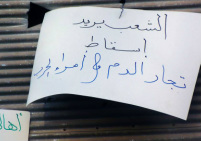 الشعب يريد
إسقاط
تجار الدم و أمراء الحرب
أهال